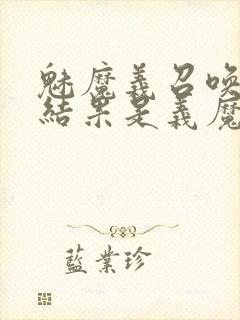 魅魔義召喚
結果是義魔
藍業珍